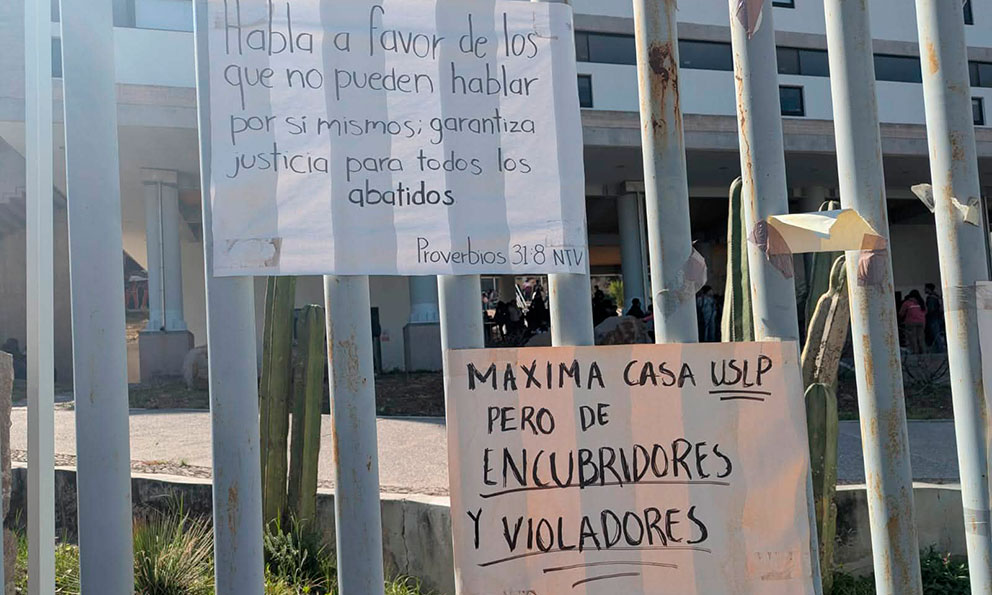 Habla a favor de los
que no pueden hablar
por si mismos; garantiza
justicia para todos los
abatidos
Proverbios 31:8 NTV
MAXIMA CASA USLP
PERO DE
ENCUBRIDORES
Y VIOLADORES